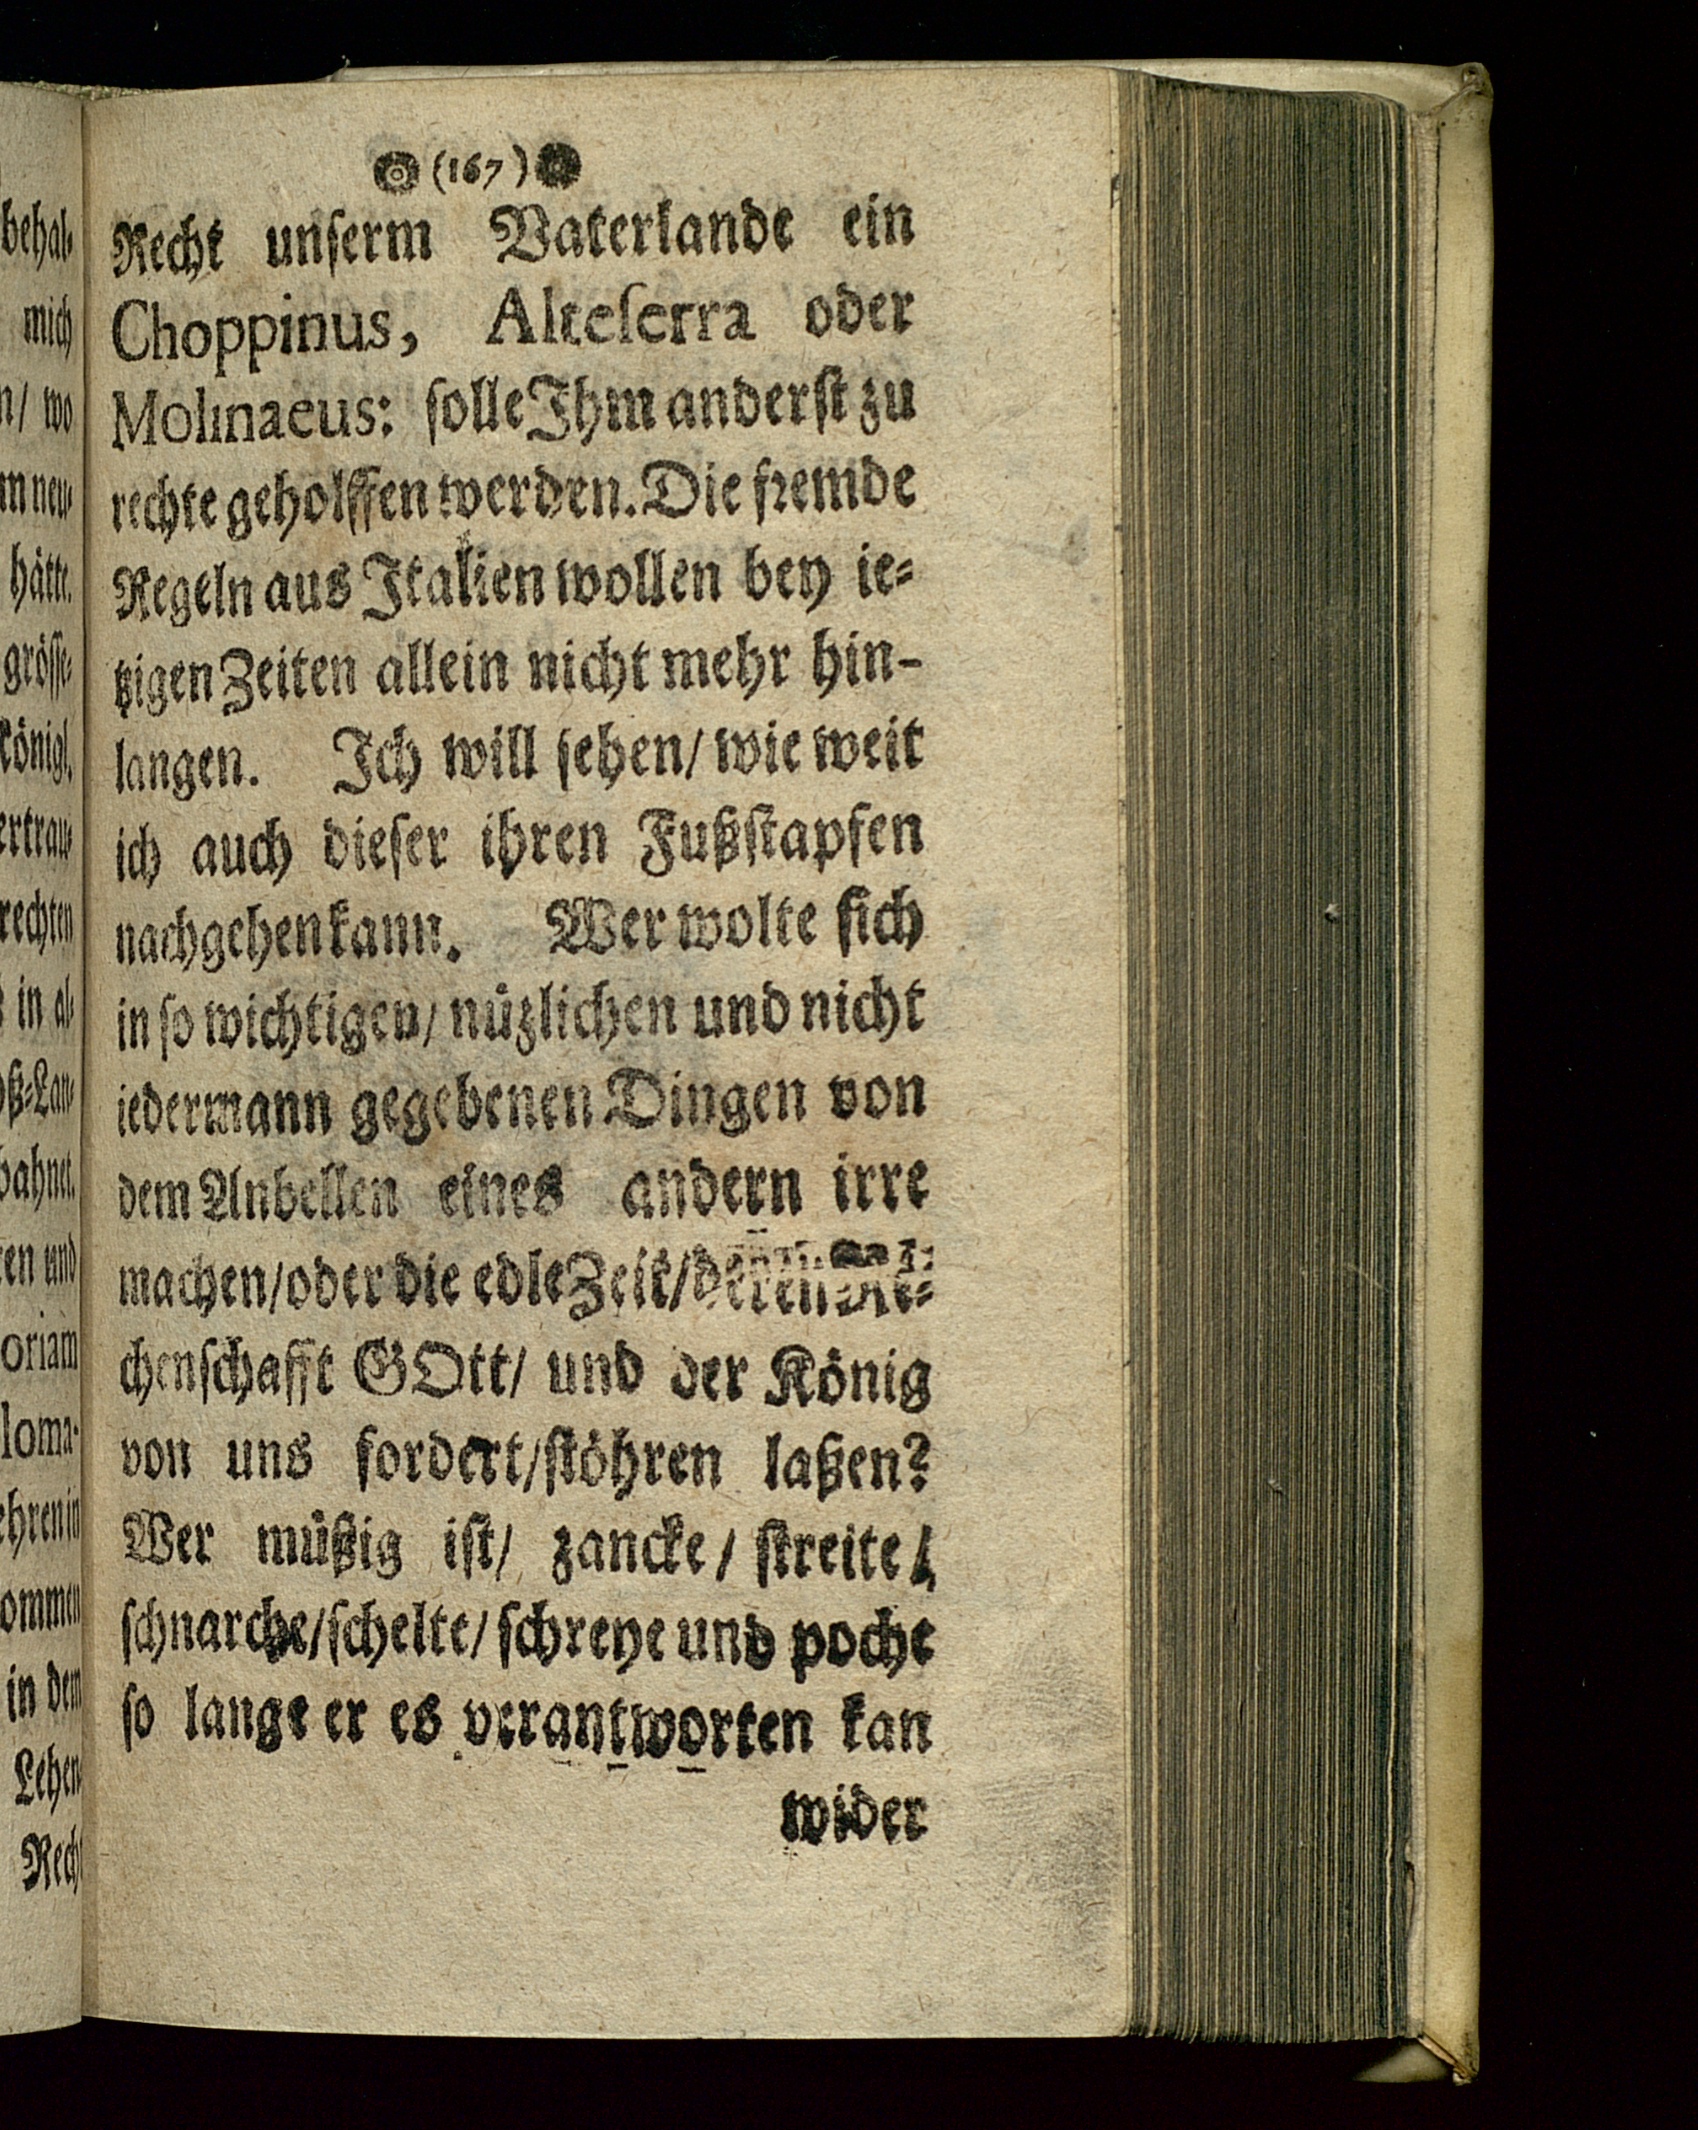 (167)
Recht unserm Vaterlande ein
Choppinus, Alteserra oder
Molinaeus: solle Ihm anderst zu
rechte geholffen werden. Die fremde
Regeln aus Italien wollen bey ie-
tzigen Zeiten allein nicht mehr hin-
langen. Ich will sehen/ wie weit
ich auch dieser ihren Fußstapfen
nachgehen kann. Wer wolte sich
in so wichtigen/ nüzlichen und nicht
iedermann gegebenen Dingen von
dem Anbellen eines andern irre
machen/oder die edle Zeit/deren Re-
chenschafft GOtt/ und der König
von uns fordert/stöhren laßen?
Wer müßig ist/ zancke / streite /
schnarche/schelte/ schreye und poche
so lange er es verantworten kan
wider
behal-
mich
n/ wo
m neu-
hätte.
grösse-
königl.
ertrau-
rechten
in al-
oß-Lan-
bahnet.
en und
oriam
loma-
ehren in
ommen
in dem
Lehen
Recht